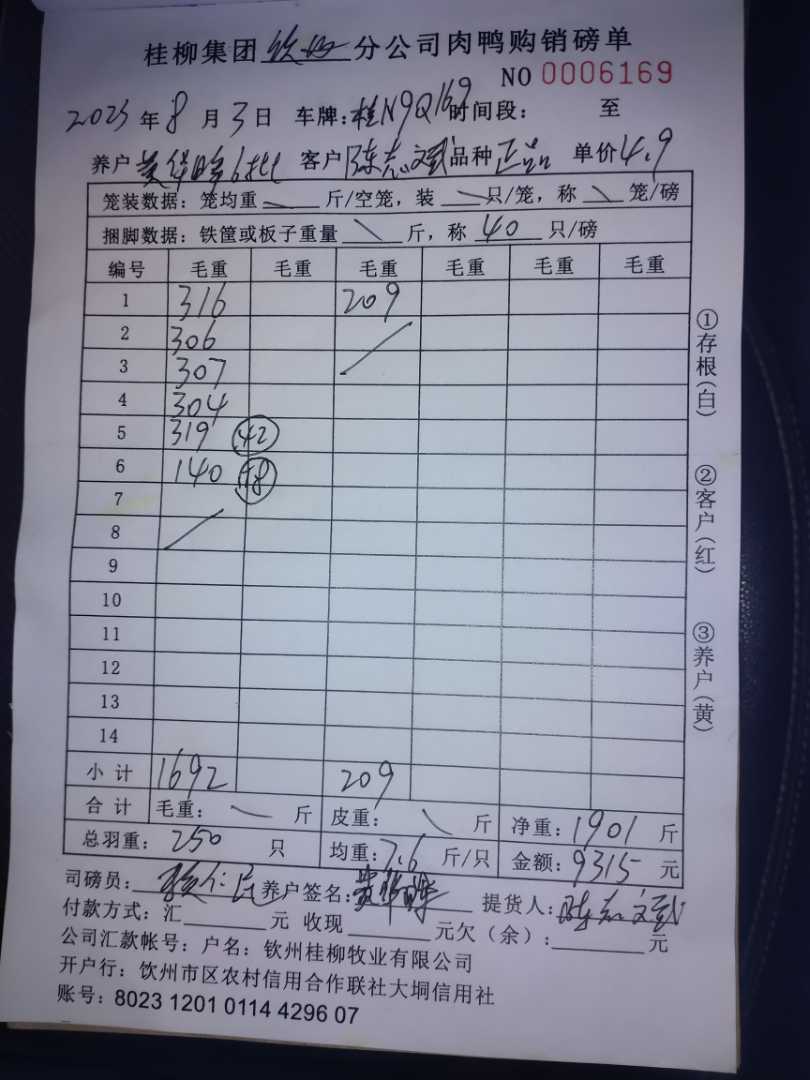 桂柳集团钦州分公司肉鸭购销磅单
NO 0006169
2023年8月3日 车牌:桂N9Q169时间段: 至
养户黄华晖6批 客户陈志文武品种正品 单价4.9
笼装数据:笼均重 斤/空笼,装 只/笼,称 笼/磅
捆脚数据:铁筐或板子重量 斤,称 40 只/磅
编号 毛重 毛重 毛重 毛重 毛重 毛重
1 316 209
2 306
3 307
4 304
5 319 42
6 140 18
7
8
9
10
11
12
13
14
小计 1692 209
合计 毛重: 斤 皮重: 斤 净重:1901 斤
总羽重:250 只 均重:7.6 斤/只 金额:9315 元
司磅员: 养户签名:黄华晖 提货人:陈志
付款方式:汇 元 收现 元欠(余): 元
公司汇款帐号:户名:钦州桂柳牧业有限公司
开户行:饮州市区农村信用合作联社大垌信用社
账号:8023 1201 0114 4296 07
①存根(白)
②客户(红)
③养户(黄)